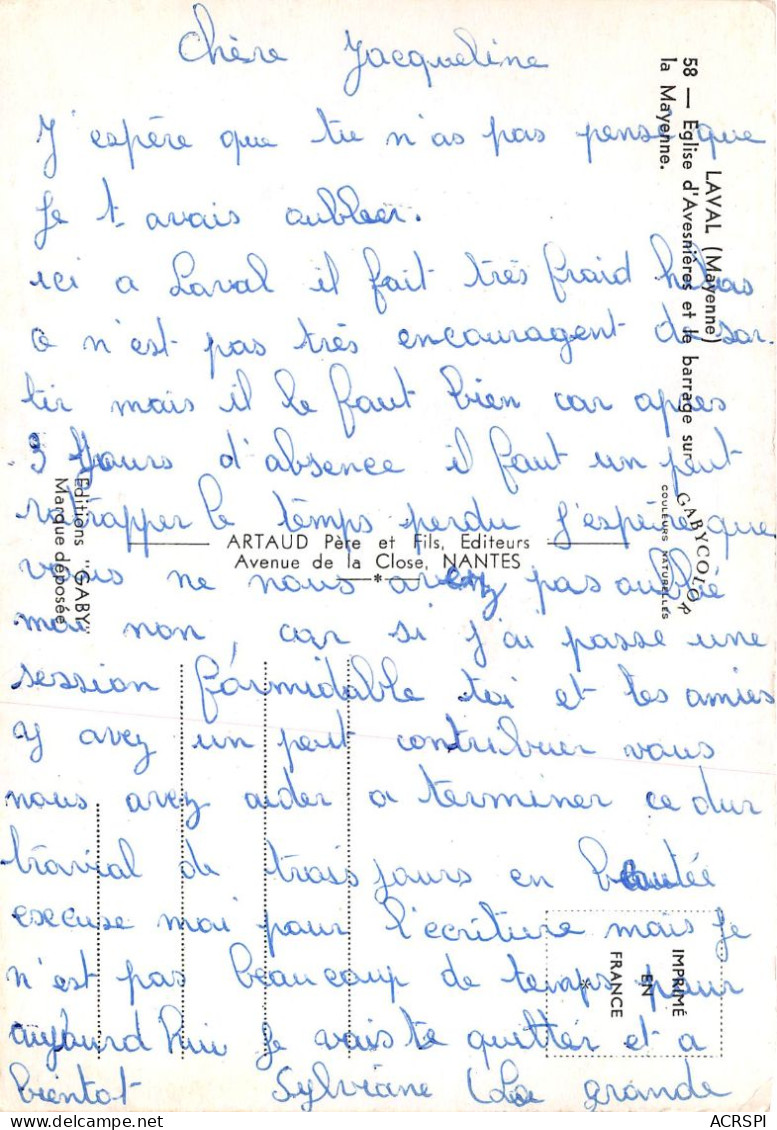 Chère Jacqueline
J'espère que tu n'as pas pensé que
je t avais oublier.
ici a Laval il fait très froid hélas
ce n'est pas très encouragent de sor.
tir mais il le faut bien car après
3 jours d'absence il faut un peut
ratrapper le temps perdu j'espère que
vous ne nous avez pas oublié
moi non, car si j'ai passé une
session formidable toi et tes amies
y avez un peut contribuer vous
nous avez aider a terminer ce dur
travial de trois jours en beautée
excuse moi pour l'écriture mais je
n'est pas beaucoup de temps pour
aujourd'hui je vais te quitter et a
bientot Sylviane (La grande
LAVAL (Mayenne)
58 — Eglise d'Avesnières et le barrage sur
la Mayenne.
GABYCOLOR
COULEURS NATURELLES
Editions "GABY"
Marque déposée
ARTAUD Père et Fils, Editeurs
Avenue de la Close, NANTES
*
IMPRIMÉ
EN
FRANCE
*
ACRSPI